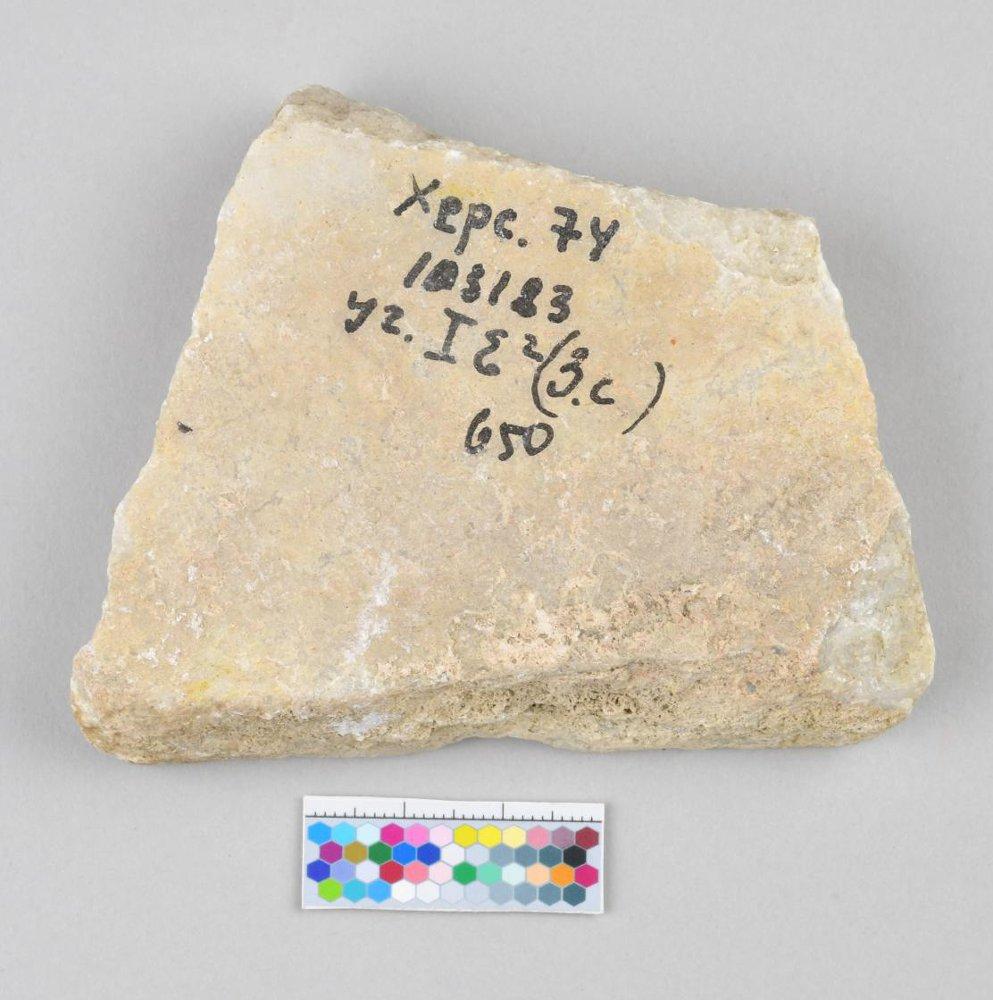 Херс. 74
103183
уг. I Ɛ² (З.с)
650